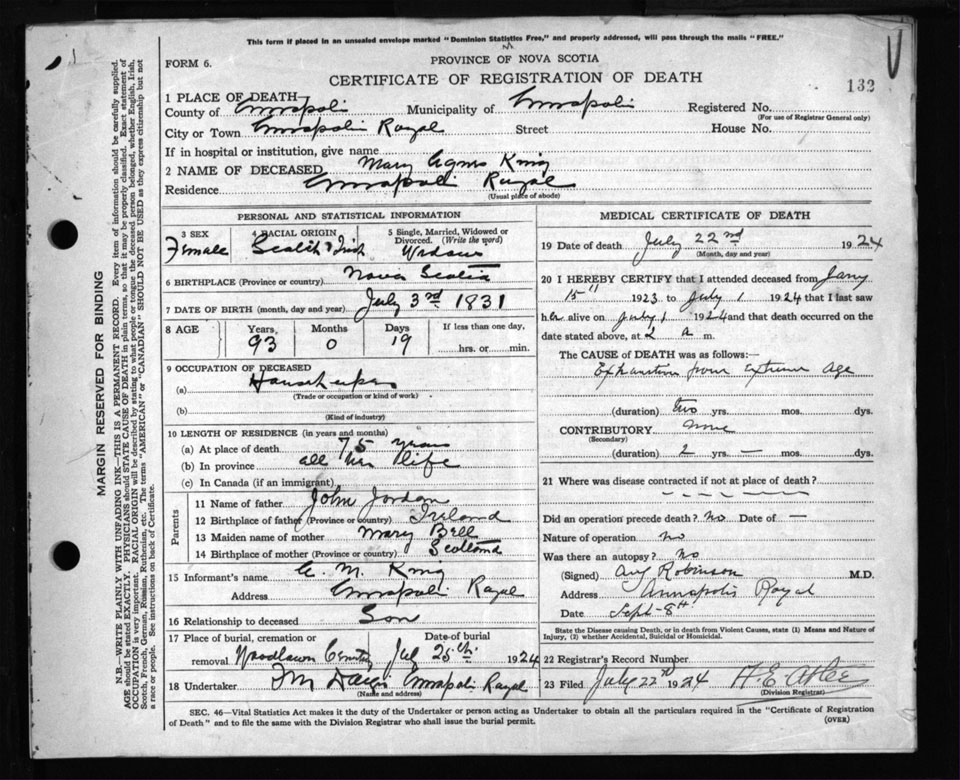 This form if placed in an unsealed envelope marked "Dominion Statistics Free," and properly addressed, will pass through the mails "FREE."
FORM 6.
PROVINCE OF NOVA SCOTIA
CERTIFICATE OF REGISTRATION OF DEATH
132
1 PLACE OF DEATH
County of Annapolis Municipality of Annapolis Registered No.
(For use of Registrar General only)
City or Town Annapolis Royal Street House No.
If in hospital or institution, give name
2 NAME OF DECEASED Mary Agnes King
Residence Annapolis Royal
(Usual place of abode)
PERSONAL AND STATISTICAL INFORMATION
3 SEX 4 RACIAL ORIGIN 5 Single, Married, Widowed or Divorced. (Write the word)
Female Scotch & Irish Widow
6 BIRTHPLACE (Province or country) Nova Scotia
7 DATE OF BIRTH (month, day and year) July 3rd 1831
8 AGE Years, Months Days If less than one day,
93 0 19 hrs. or min.
9 OCCUPATION OF DECEASED
(a) Housekeeper
(Trade or occupation or kind of work)
(b)
(Kind of industry)
10 LENGTH OF RESIDENCE (in years and months)
(a) At place of death 75 years
(b) In province all her life
(c) In Canada (if an immigrant)
Parents
11 Name of father John Jordan
12 Birthplace of father (Province or country) Ireland
13 Maiden name of mother Mary Bell
14 Birthplace of mother (Province or country) Scotland
15 Informant's name M. King
Address Annapolis Royal
16 Relationship to deceased Son
17 Place of burial, cremation or Date of burial
removal Woodlawn Cemetery July 25th 1924
18 Undertaker Annapolis Royal
(Name and address)
MEDICAL CERTIFICATE OF DEATH
19 Date of death July 22nd 1924
(Month, day and year)
20 I HEREBY CERTIFY that I attended deceased from Jany
15" 1923 to July 1 1924 that I last saw
her alive on July 1 1924 and that death occurred on the
date stated above, at 2 a m.
The CAUSE OF DEATH was as follows:—
Exhaustion from extreme age
(duration) two yrs. mos. dys.
CONTRIBUTORY none
(Secondary)
(duration) 2 yrs. — mos. dys.
21 Where was disease contracted if not at place of death?
Did an operation precede death? No Date of —
Nature of operation no
Was there an autopsy? No
(Signed) Robinson M.D.
Address Annapolis Royal
Date Sept-8th
State the Disease causing Death, or in death from Violent Causes, state (1) Means and Nature of
Injury, (2) whether Accidental, Suicidal or Homicidal.
22 Registrar's Record Number
23 Filed July 22nd 1924 H. E. Atlee
(Division Registrar)
SEC. 46—Vital Statistics Act makes it the duty of the Undertaker or person acting as Undertaker to obtain all the particulars required in the "Certificate of Registration
of Death" and to file the same with the Division Registrar who shall issue the burial permit. (OVER)
MARGIN RESERVED FOR BINDING
N.B.—WRITE PLAINLY WITH UNFADING INK—THIS IS A PERMANENT RECORD. Every item of information should be carefully supplied.
AGE should be stated EXACTLY. PHYSICIANS should STATE CAUSE OF DEATH in plain terms, so that it may be properly classified. Exact statement of
OCCUPATION is very important. RACIAL ORIGIN will be described by stating to what people or tongue the deceased person belonged, whether English, Irish,
Scotch, French, German, Russian, Ruthenian, etc. The terms "AMERICAN" or "CANADIAN" SHOULD NOT BE USED as they express citizenship but not
a race or people. See instructions on back of Certificate.